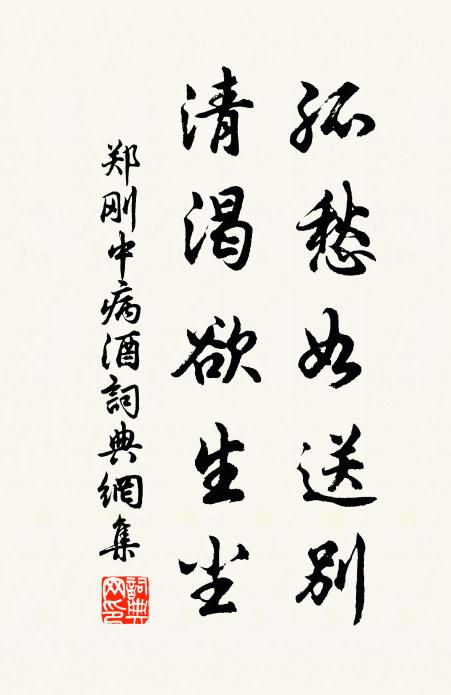 孤愁如送别
清渴欲生尘
郑刚中病酒詞典網集
詞典網印